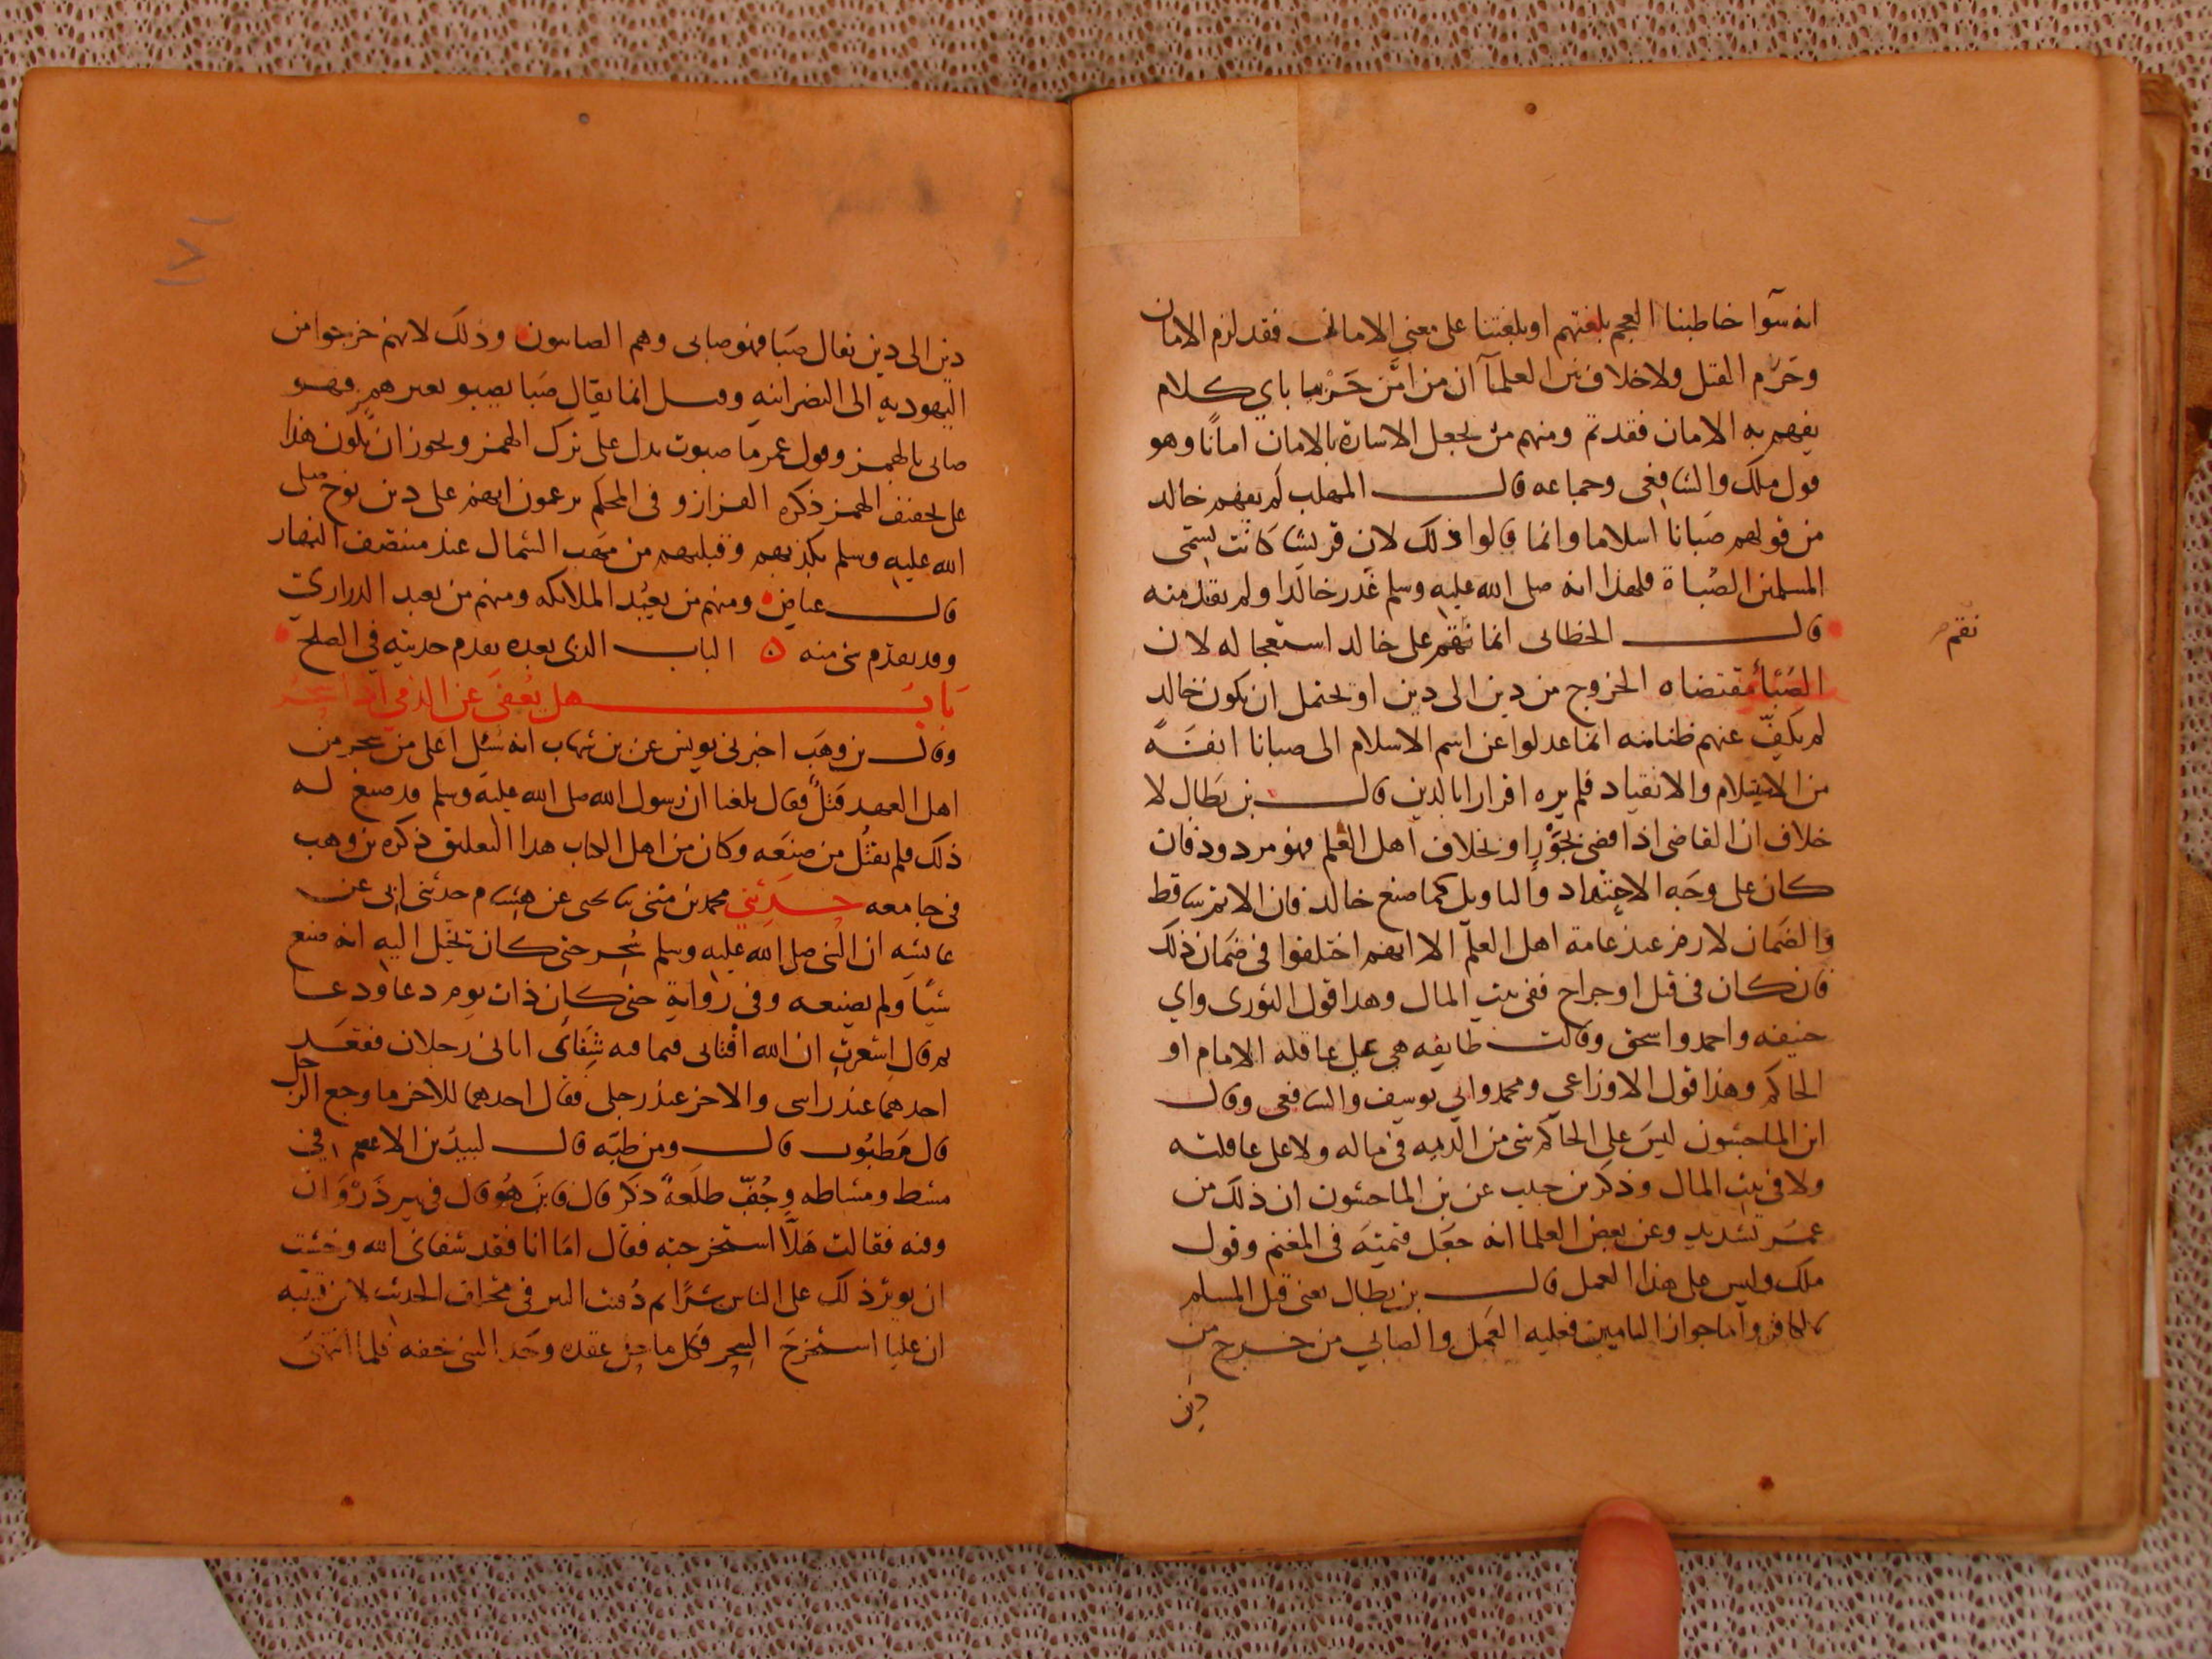 انه سوآ خاطبنا العجم بلغتهم او بلغتنا على معنى الامان فقد لزم الامان
وحَرُم القتل ولا خلاف بين العلمآ ان من امّن حَرْبيا باي كلام
يفهم به الامان فقد تم ومنهم من يجعل الاشارة بالامان امانًا وهو
قول ملك والشافعى وجماعه قال المهلب لم يفهم خالد
من قولهم صَبانا اسلاما وانما قالوا ذلك لان قريشا كانت تسمى
المسلمين الصُباة فلهذا انه صلى الله عليه وسلم عذر خالدا ولم يقد منه
قال الخطابى انما نَقَم على خالد استعجاله لان
نقم
الصَبأ مقتضاه الخروج من دين الى دين او يحتمل ان يكون خالد
لم يكفّ عنهم ظنا منه انما عدلوا عن اسم الاسلام الى صبانا انفَةً
من الاستسلام والانقياد فلم يره اقرارا بالدين قال بن بَطال لا
خلاف ان القاضى اذا قضى بجَوْرٍ او بخلاف اهل العلم فهو مردود فان
كان على وجه الاجتهاد والتاويل كما صنع خالد فان الاثم ساقط
والضمان لازم عند عامة اهل العلم الا انهم اختلفوا فى ضمان ذلك
فان كان فى قتل او جراح ففى بيت المال وهذا قول الثورى وابي
حنيفه واحمد واسحق وقالت طايفه هي على عاقله الامام او
الحاكم وهذا قول الاوزاعي ومحمد وابي يوسف والشافعى وقال
ابن الماجشون ليس على الحاكم شى من الديه فى ماله ولا على عاقلته
ولا فى بيت المال وذكر بن حبيب عن بن الماجشون ان ذلك من
عمر تشديد وعن بعض العلما انه جعل قيمته فى المغنم وقول
ملك وليس على هذا العمل قال بن بطال يعنى قتل المسلم
بالكافر واما جواز التامين فعليه العمل والصابي من خرج من
دين
دين الى دين يقال صَبا فهو صابى وهم الصابيون وذلك لانهم خرجوا من
اليهوديه الى النصرانيه وقيل انما يقال صَبا يصبو بغير همز فهو
صابى بالهمز وقول عمر ما صبوت يدل على ترك الهمز ويجوز ان يكون هذا
على تخفيف الهمز ذكره القزاز وفى المحكم يزعمون انهم على دين نوح صلى
الله عليه وسلم بكذبهم وقبلتهم من مهب الشمال عند منتصف النهار
قال عياض ومنهم من يعبُد الملائكه ومنهم من يعبد الدراري
وقد تقدم شى منه ۵ الباب الذى بعده تقدم حديثه فى الصلح
بَابُ هل يُعفَى عن الذمي اذا سَحَرَ
وقال بن وهَب اخبرنى يونس عن بن شهاب انه سُئل اعلى من سحر من
اهل العهد قتلٌ فقال بلغنا ان رسول الله صلى الله عليه وسلم قد صنع له
ذلك فلم يقتُل من صنعَه وكان من اهل الكتاب هذا التعليق ذكره بن وهب
فى جامعه حدثني محمد بن مثنى ثنا يحيى عن هشام حدثنى ابى عن
عايشه ان النبى صلى الله عليه وسلم سُحر حتى كان يخيل اليه انه صنع
شيًا ولم يصنعه وفى رواية حتى كان ذات يوم دعا ودعا
ثم قال اشعرتِ ان الله افتانى فيما فيه شِفَائى اتانى رجلان فقعَد
احدهما عند راسى والاخر عند رجلى فقال احدهما للاخر ما وجع الرجل
قال مَطبُوب قال ومن طبّه قال لبيد بن الاعصم فى
مشط ومشاطه وجُفّ طلعَةٍ ذكر قال فاين هُو قال فى بير ذَرْوَان
وفيه فقالت هَلَّا استخرجته فقال امَا انا فقد شفانى الله وخشيت
ان يوثر ذلك على الناس شرًا ثم دُفنت البير فى مخالف الحديث لابن قتيبه
ان عليا استخرجَ السحر فكل ما حل عقده وجد النبى خفه فلما انتهى